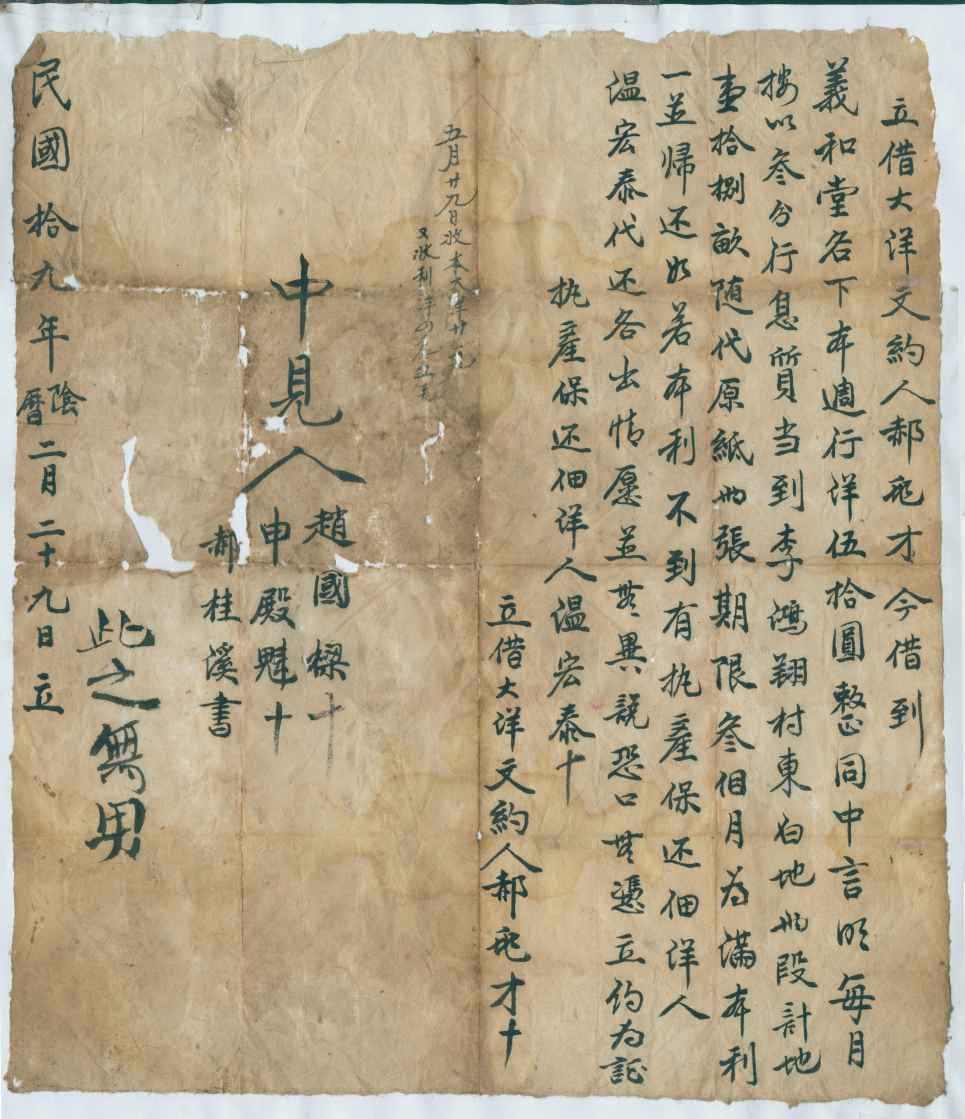 立借大洋文約人郝正才今借到
義和堂名下本週行洋伍拾圓整同中言明每月
按以叁分行息質当到李鴻翔村東白地段計地
壹拾捌畝随代原紙張期限叁個月為滿本利
一並歸还如若本利不到有执産保还佃洋人
溫宏泰代还各出情愿並無異説恐口無憑立約為証
执産保还佃洋人溫宏泰十
立借大洋文約人郝才十
五月廿九日收本大洋廿元
又收利洋四元五毛
中見人
趙國樑十
申殿魁十
郝桂溪書
此之無用
民國拾九年陰曆二月二十九日立